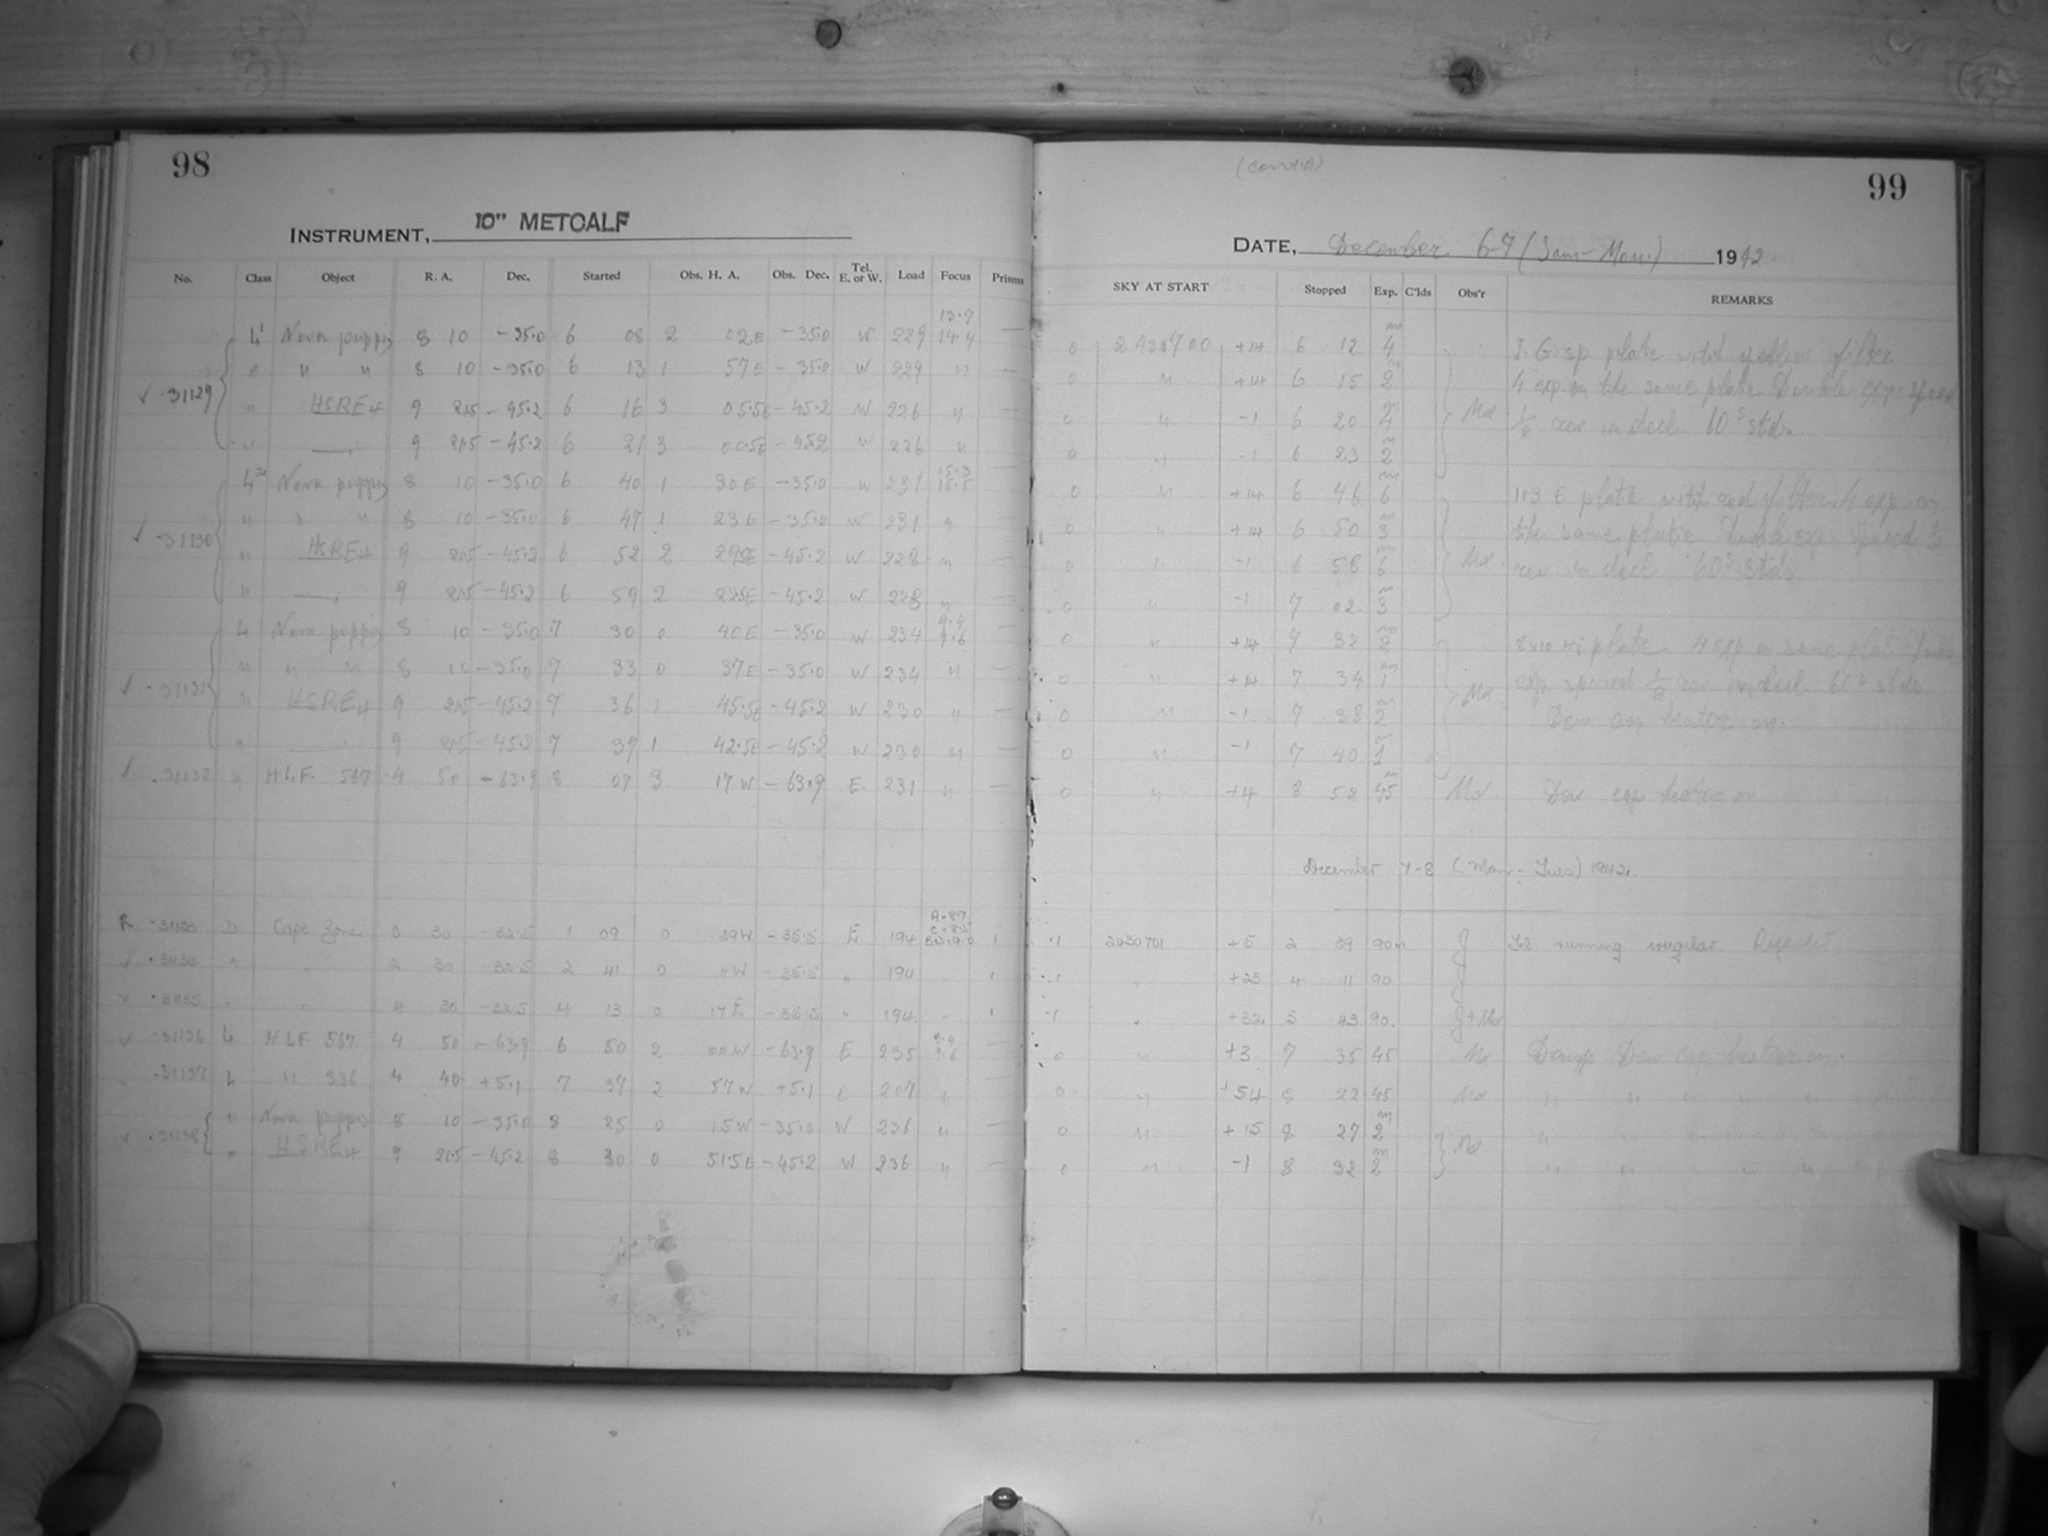 98
INSTRUMENT, 10" METCALF
No. Class Object R. A. Dec. Started Obs. H. A. Obs. Dec. Tel. E. or W. Load Focus Prisms
13.7
4 Nova puppis 8 10 -35.0 6 08 2 02E -35.0 W 229 14.4 —
" " " 8 10 -35.0 6 13 1 57E -35.0 W 229 " —
✓ 31129 " HSRE 9 21.5 -45.2 6 16 3 05.5E -45.2 W 226 "
" — 9 21.5 -45.2 6 21 3 00.5E -45.2 W 226 "
4 Nova puppis 8 10 -35.0 6 40 1 30E -35.0 W 231 15.5
" " " 8 10 -35.0 6 47 1 23E -35.0 W 231 "
✓ 31130 " HSRE 9 21.5 -45.2 6 52 2 29.5E -45.2 W 228 "
" — 9 21.5 -45.2 6 59 2 22.5E -45.2 W 228 "
9.4
L Nova puppis 8 10 -35.0 7 30 0 40E -35.0 W 234 9.6
" " " 8 10 -35.0 7 33 0 37E -35.0 W 234 " —
✓ 31131 " HSRE 9 21.5 -45.2 7 36 1 45.5E -45.2 W 230 " —
" — 9 21.5 -45.2 7 39 1 42.5E -45.2 W 230 " —
✓ 31132 " HLF. 567 4 50 -63.9 8 07 3 17W -63.9 E 231 " —
R 31133 D Cape Zone 0 30 -32.5 1 09 0 29W -35.5 E 194 1
✓ 31134 " " 2 30 -32.5 2 41 0 11W -35.5 " 194 1
✓ 31135 " " 4 30 -32.5 4 13 0 17E -35.5 " 194 1
✓ 31136 L HLF. 567 4 50 -63.9 6 50 2 00W -63.9 E 235
31137 L " 336 4 40 +5.1 7 37 2 57W +5.1 E 207 "
✓ 31138 " Nova puppis 8 10 -35.0 8 25 0 15W -35.0 W 236 " —
" HSRE 9 21.5 -45.2 8 30 0 51.5E -45.2 W 236 " —
(contd)
99
DATE, December 6-7 (Sun-Mon.) 1942
SKY AT START Stopped Exp. C'lds Obs'r REMARKS
0 2430700 +14 6 12 4m I. G. sp. plate with yellow filter
0 " +14 6 15 2m 4 exp. on the same plate Double exp. spaced
0 " -1 6 20 4m Md ½ rev in decl. 60s stds.
0 " -1 6 23 2m
0 " +14 6 46 6m 103 E plate with red filter. 4 exp. on
0 " +14 6 50 3m the same plate. Double exp. spaced ½
0 " -1 6 58 6m Md rev in decl. 60s stds
0 " -1 7 02 3m
0 " +14 7 32 2m 8x10 Hi plate 4 exp on same plate Double
0 " +14 7 34 1m exp. spaced ½ rev in decl. 60s stds
0 " -1 7 38 2m Md Dew cap heater on.
0 " -1 7 40 1m
0 " +4 8 52 45m Md Dew cap heater on
December 7-8 (Mon.-Tues) 1942.
.1 2430701 +5 2 39 90m Tel. running irregular. Rejected
.1 " +23 4 11 90
.1 " +32 5 43 90
0 " +3 7 35 45 Md Damp Dew cap heater on.
0 " +54 8 22 45 Md " " " " "
0 " +15 8 27 2m Md "
0 " -1 8 32 2m " " " "